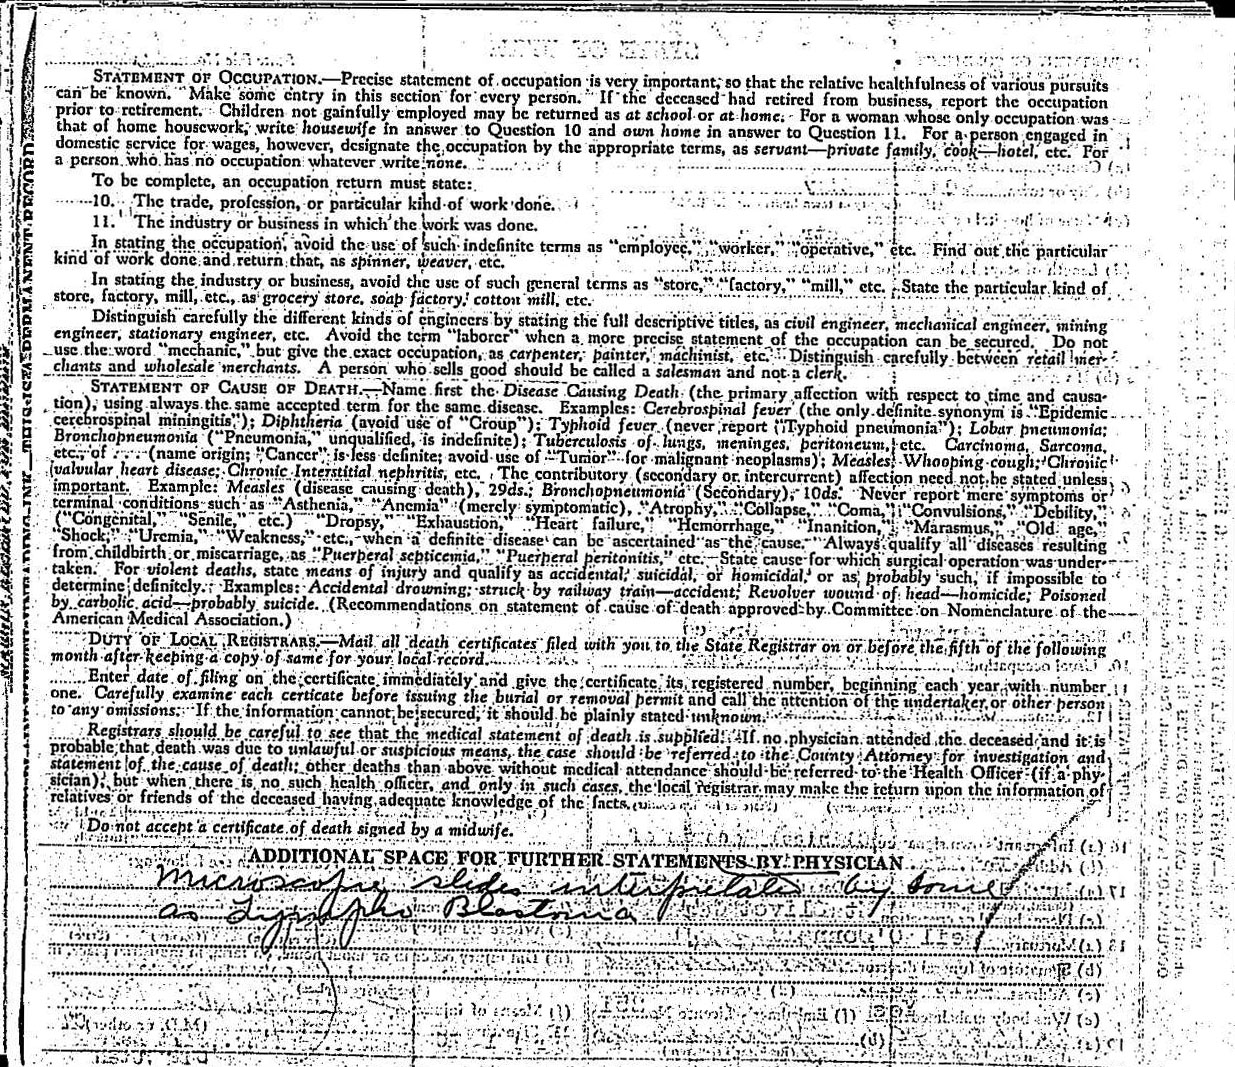 STATEMENT OF OCCUPATION.—Precise statement of occupation is very important, so that the relative healthfulness of various pursuits
can be known. Make some entry in this section for every person. If the deceased had retired from business, report the occupation
prior to retirement. Children not gainfully employed may be returned as at school or at home. For a woman whose only occupation was
that of home housework, write housewife in answer to Question 10 and own home in answer to Question 11. For a person engaged in
domestic service for wages, however, designate the occupation by the appropriate terms, as servant—private family, cook—hotel, etc. For
a person who has no occupation whatever write none.
To be complete, an occupation return must state:
10. The trade, profession, or particular kind of work done.
11. The industry or business in which the work was done.
In stating the occupation, avoid the use of such indefinite terms as "employee," "worker," "operative," etc. Find out the particular
kind of work done and return that, as spinner, weaver, etc.
In stating the industry or business, avoid the use of such general terms as "store," "factory," "mill," etc. State the particular kind of
store, factory, mill, etc., as grocery store, soap factory, cotton mill, etc.
Distinguish carefully the different kinds of engineers by stating the full descriptive titles, as civil engineer, mechanical engineer, mining
engineer, stationary engineer, etc. Avoid the term "laborer" when a more precise statement of the occupation can be secured. Do not
use the word "mechanic," but give the exact occupation, as carpenter, painter, machinist, etc. Distinguish carefully between retail mer-
chants and wholesale merchants. A person who sells good should be called a salesman and not a clerk.
STATEMENT OF CAUSE OF DEATH.—Name first the Disease Causing Death (the primary affection with respect to time and causa-
tion), using always the same accepted term for the same disease. Examples: Cerebrospinal fever (the only definite synonym is "Epidemic
cerebrospinal miningitis,"); Diphtheria (avoid use of "Croup"); Typhoid fever (never report "Typhoid pneumonia"); Lobar pneumonia;
Bronchopneumonia ("Pneumonia," unqualified, is indefinite); Tuberculosis of lungs, meninges, peritoneum, etc. Carcinoma, Sarcoma,
etc., of . . . . (name origin; "Cancer" is less definite; avoid use of "Tumor" for malignant neoplasms); Measles; Whooping cough; Chronic
valvular heart disease; Chronic Interstitial nephritis, etc. The contributory (secondary or intercurrent) affection need not be stated unless
important. Example: Measles (disease causing death), 29ds.; Bronchopneumonia (Secondary), 10ds. Never report mere symptoms or
terminal conditions such as "Asthenia," "Anemia" (merely symptomatic), "Atrophy," "Collapse," "Coma," "Convulsions," "Debility,"
("Congenital," "Senile," etc.) "Dropsy," "Exhaustion," "Heart failure," "Hemorrhage," "Inanition," "Marasmus," "Old age,"
"Shock," "Uremia," "Weakness," etc., when a definite disease can be ascertained as the cause. Always qualify all diseases resulting
from childbirth or miscarriage, as "Puerperal septicemia," "Puerperal peritonitis," etc. State cause for which surgical operation was under-
taken. For violent deaths, state means of injury and qualify as accidental, suicidal, or homicidal, or as probably such, if impossible to
determine definitely. Examples: Accidental drowning; struck by railway train—accident; Revolver wound of head—homicide; Poisoned
by carbolic acid—probably suicide. (Recommendations on statement of cause of death approved by Committee on Nomenclature of the
American Medical Association.)
DUTY OF LOCAL REGISTRARS.—Mail all death certificates filed with you to the State Registrar on or before the fifth of the following
month after keeping a copy of same for your local record.
Enter date of filing on the certificate immediately and give the certificate its registered number, beginning each year with number
one. Carefully examine each certicate before issuing the burial or removal permit and call the attention of the undertaker or other person
to any omissions. If the information cannot be secured, it should be plainly stated unknown.
Registrars should be careful to see that the medical statement of death is supplied. If no physician attended the deceased and it is
probable that death was due to unlawful or suspicious means, the case should be referred to the County Attorney for investigation and
statement of the cause of death; other deaths than above without medical attendance should be referred to the Health Officer (if a phy-
sician), but when there is no such health officer, and only in such cases, the local registrar may make the return upon the information of
relatives or friends of the deceased having adequate knowledge of the facts.
Do not accept a certificate of death signed by a midwife.
ADDITIONAL SPACE FOR FURTHER STATEMENTS BY PHYSICIAN
Microscopic slides interpretated by some
as Lympho Blastoma